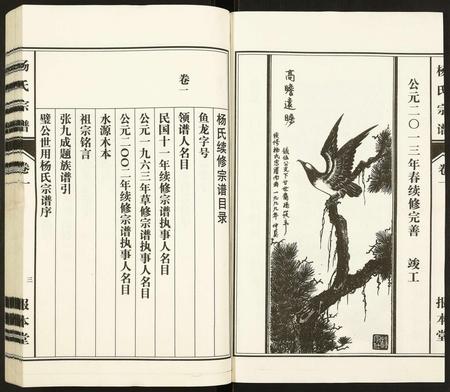 公元二〇一三年春续修完善 竣工
高瞻遠瞩
杨氏宗谱
卷一
报本堂
杨氏续修宗谱目录
卷一
鱼龙字号
领谱人名目
民国十一年续修宗谱执事人名目
公元一九六三年草修宗谱执事人名目
公元二〇〇二年续修宗谱执事人名目
水源木本
祖宗铭言
张九成题族谱引
璧公世用杨氏宗谱序
杨氏宗谱
卷一
三
报本堂